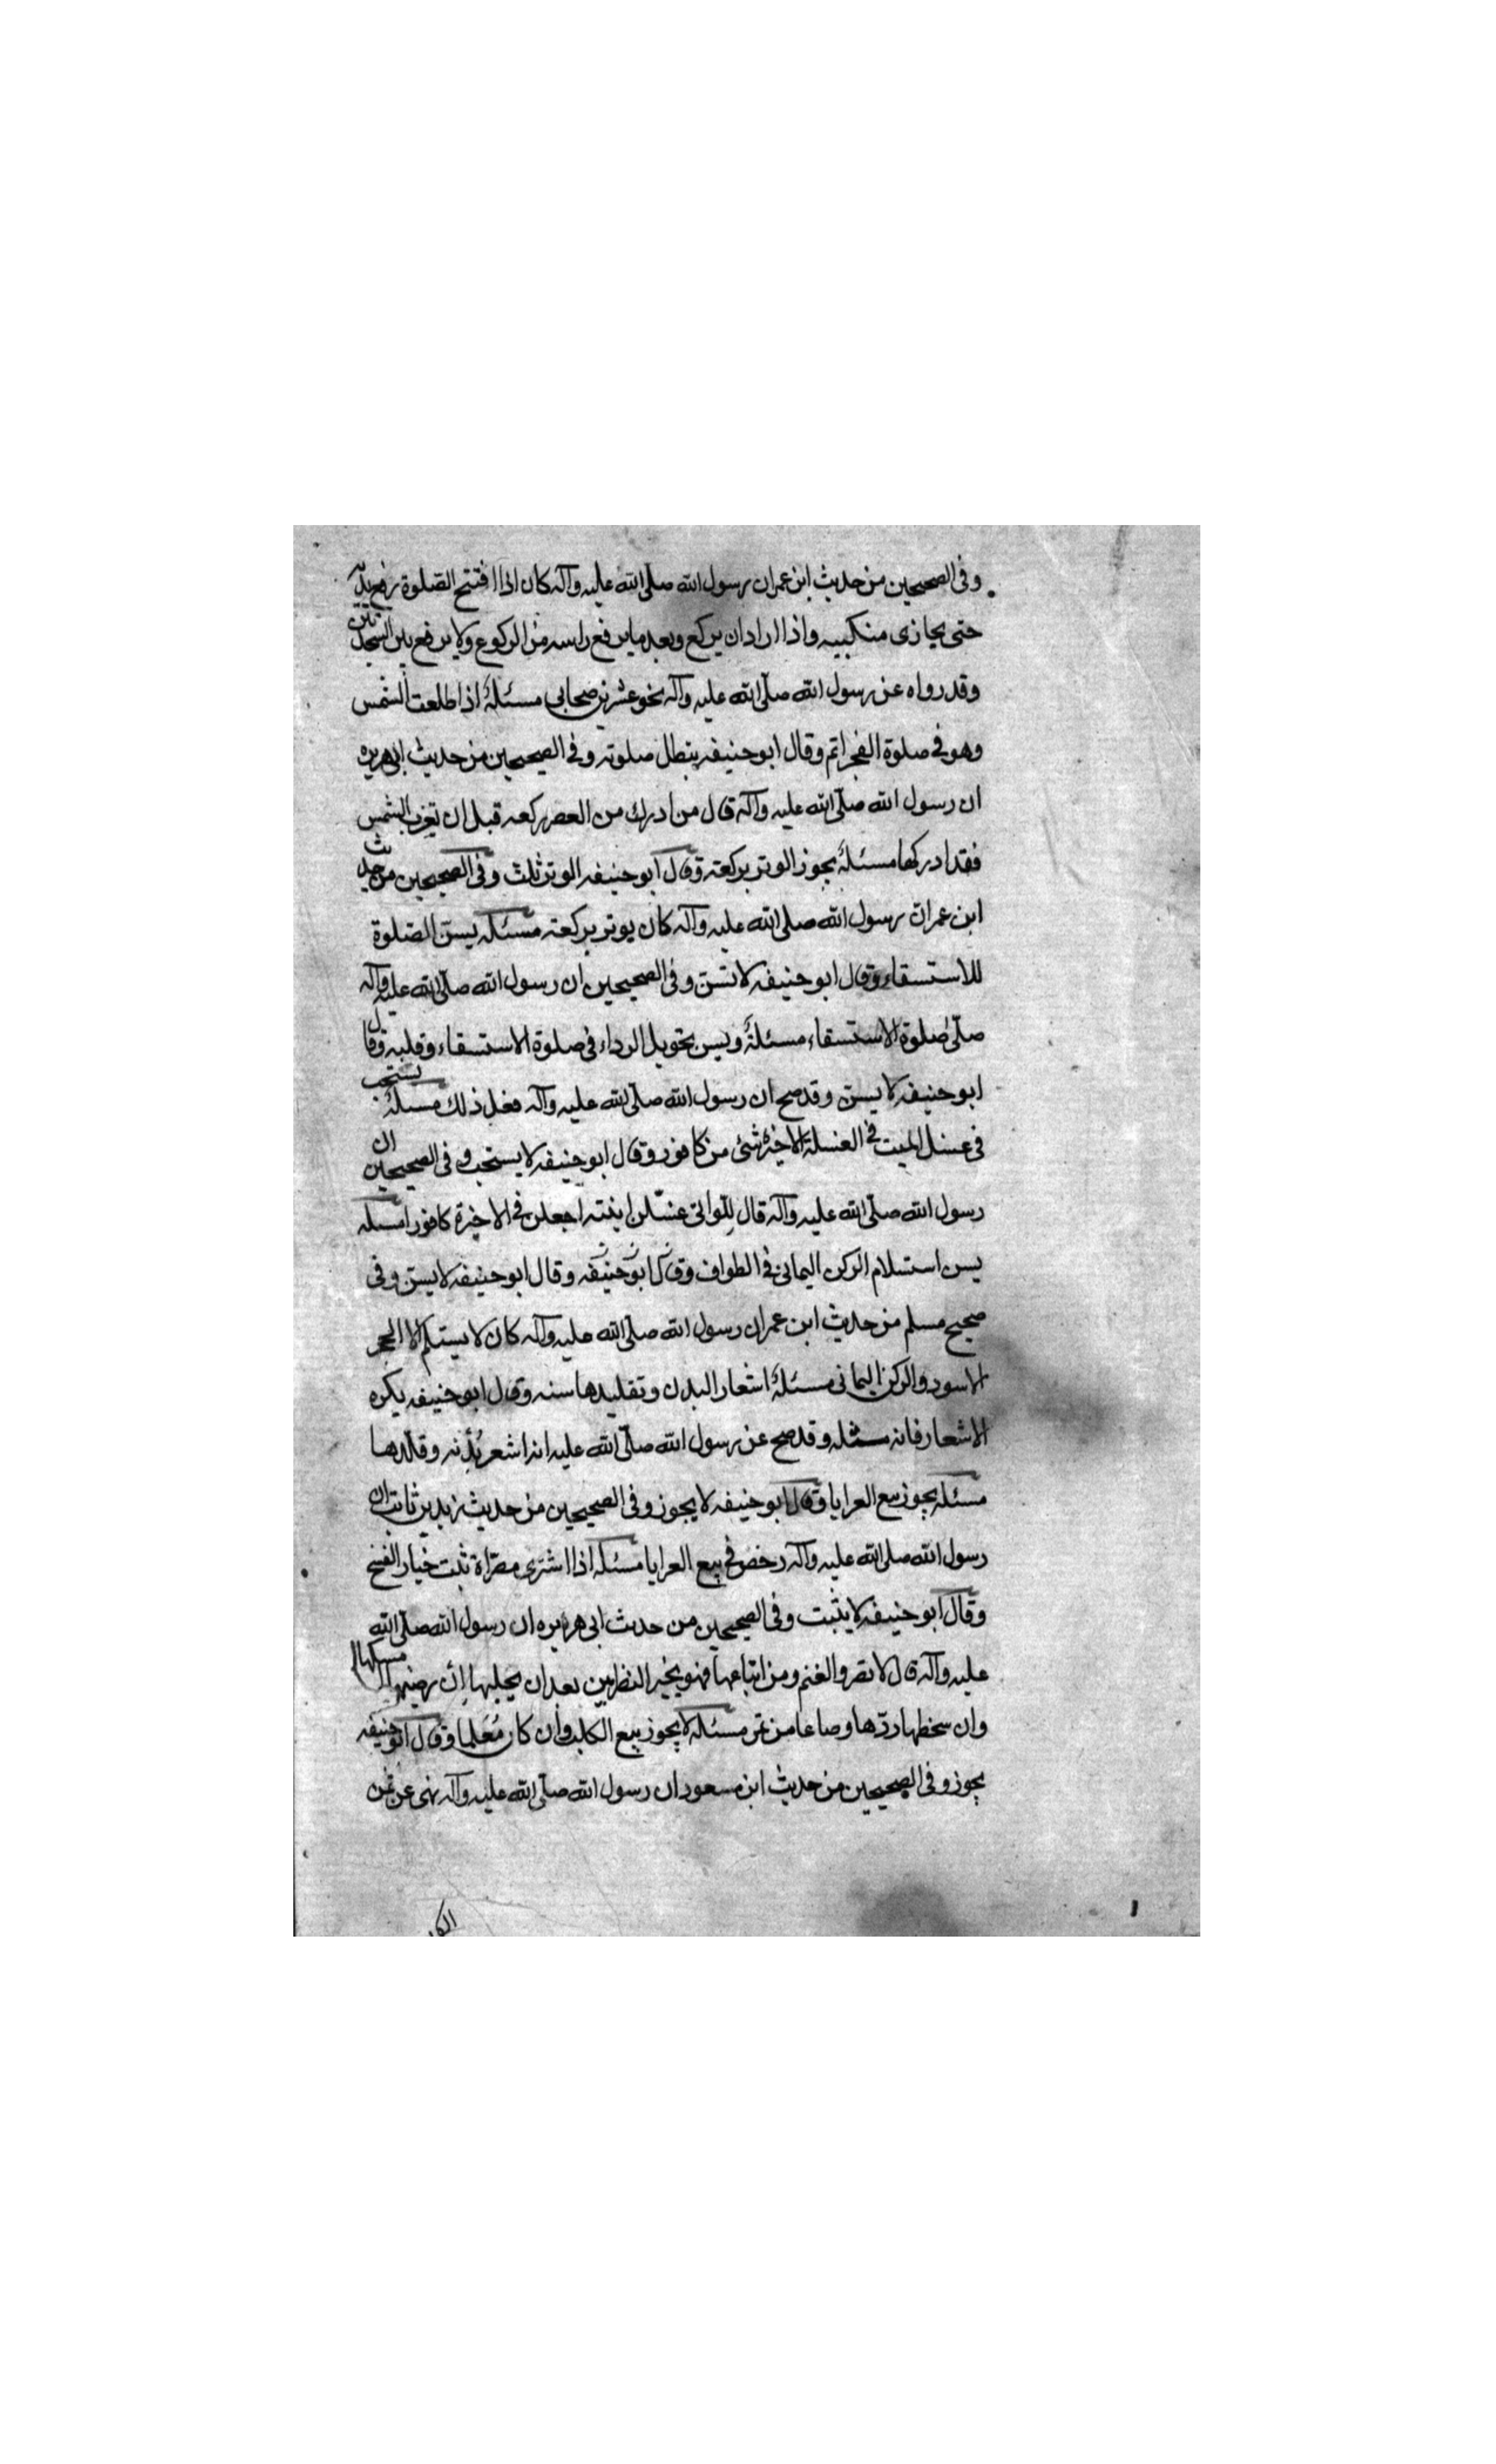 وفى الصحيحين من حديث ابن عمر ان رسول الله صلّى الله عليه وآله كان اذا افتتح الصّلوة رفع يديه
حتى يحازى منكبيه واذا اراد ان يركع وبعد ما يرفع راسه من الركوع ولا يرفع بين السجدتين
وقد رواه عن رسول الله صلّى الله عليه وآله نحو عشرين صحابى مسئلة اذا طلعت الشمس
وهو فى صلوة الفجر اتم وقال ابو حنيفه يبطل صلوته وفى الصحيحين من حديث ابى هريره
ان رسول الله صلّى الله عليه وآله قال من ادرك من العصر ركعه قبل ان تغرب الشمس
فقد ادركها مسئلة يجوز الوتر بركعته وقال ابو حنيفه الوتر ثلث وفى الصحيحين من حديث
ابن عمر ان رسول الله صلى الله عليه وآله كان يوتر بركعته مسئله يسنّ الصّلوة
للاستسقاء وقال ابو حنيفه لا تسنّ وفى الصحيحين ان رسول الله صلّى الله عليه وآله
صلّى صلوة الاستسقاء مسئلة ويسن تحويل الرداء فى صلوة الاستسقاء وقلبه وقال
ابو حنيفه لا يسنّ وقد صح ان رسول الله صلّى الله عليه وآله فعل ذلك مسئلة يستحب
فى غسل الميت فى الغسلة الاخيرة شئ من كافور وقال ابو حنيفه لا يستحب وفى الصحيحين ان
رسول الله صلّى الله عليه وآله قال للّواتى غسّلن ابنته اجعلن فى الاخيرة كافورا مسئله
يسن استسلام الركن اليمانى فى الطواف وقال ابو حنيفه وقال ابو حنيفه لا يسنّ وفى
صحيح مسلم من حديث ابن عمر ان رسول الله صلّى الله عليه وآله كان لا يستلم الا الحجر
الاسود والركن اليمانى مسئلة اشعار البدن وتقليدها سنه وقال ابو حنيفه يكره
الاشعار فانه مثله وقد صح عن رسول الله صلّى الله عليه انه اشعر بُدْنه وقلّدها
مسئله يجوز بيع العرايا وقال ابو حنيفه لا يجوز وفى الصحيحين من حديث زيد بن ثابت ان
رسول الله صلى الله عليه وآله رخص فى بيع العرايا مسئله اذا اشترى مصرّاة ثبت خيار الفسخ
وقال ابو حنيفه لا يثبت وفى الصحيحين من حديث ابى هريره ان رسول الله صلّى الله
عليه وآله قال لا تصروا الغنم ومن ابتاعها فهو بخير النظرين بعد ان يحلبها إن رضيها امسكها
وان سخطها ردّها وصاعا من تمر مسئله لا يجوز بيع الكلب وان كان مُعَلما وقال ابو حنيفه
يجوز وفى الصحيحين من حديث ابن مسعود ان رسول الله صلّى الله عليه وآله نهى عن ثمن